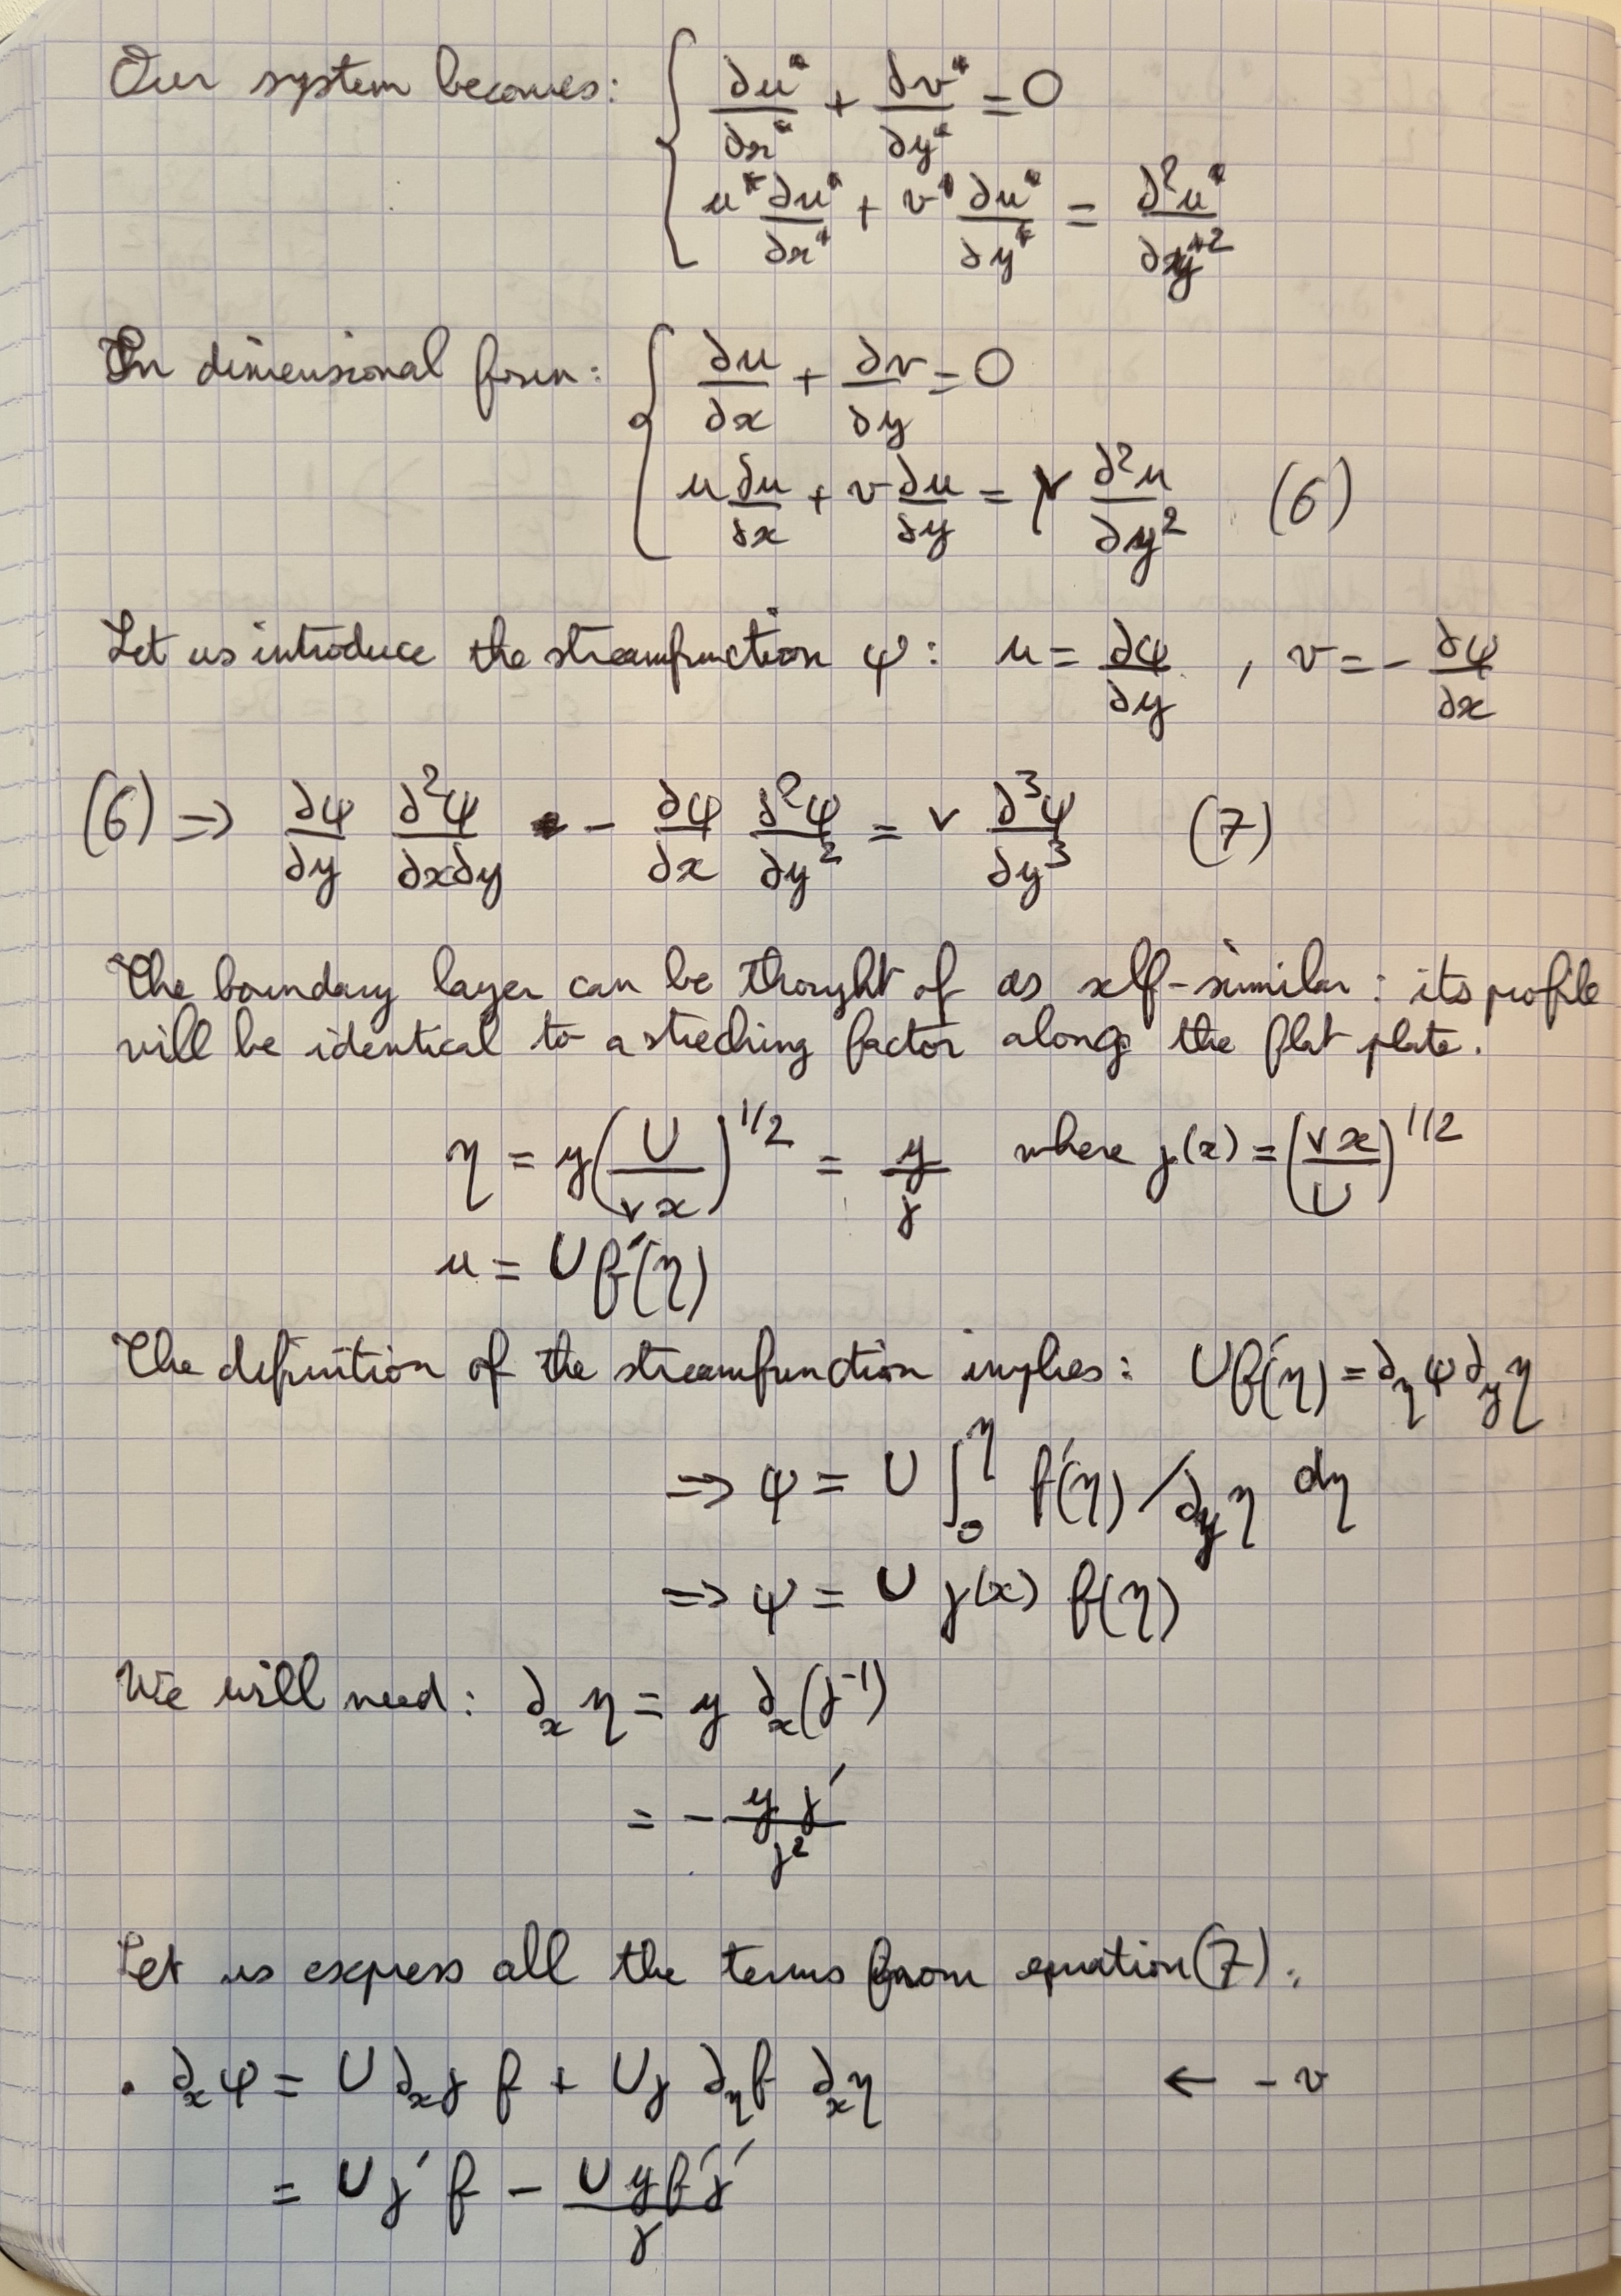 Our system becomes: { ∂u*/∂x* + ∂v*/∂y* = 0
u* ∂u*/∂x* + v* ∂u*/∂y* = ∂²u*/∂y*²
In dimensional form: { ∂u/∂x + ∂v/∂y = 0
u ∂u/∂x + v ∂u/∂y = ν ∂²u/∂y² (6)
Let us introduce the streamfunction ψ: u = ∂ψ/∂y , v = - ∂ψ/∂x
(6) => ∂ψ/∂y ∂²ψ/∂x∂y - ∂ψ/∂x ∂²ψ/∂y² = ν ∂³ψ/∂y³ (7)
The boundary layer can be thought of as self-similar: its profile
will be identical to a streching factor along the flat plate.
η = y(U/νx)^1/2 = y/γ where γ(x) = (νx/U)^1/2
u = U f'(η)
The definition of the streamfunction implies: Uf'(η) = ∂_η ψ ∂_y η
=> ψ = U ∫_0^η f'(η) / ∂_y η dη
=> ψ = U γ(x) f(η)
We will need: ∂_x η = y ∂_x(γ^-1)
= - yγ'/γ²
Let us express all the terms from equation (7):
. ∂_x ψ = U ∂_x γ f + Uγ ∂_η f ∂_x η ← -v
= Uγ' f - U y f'γ'/γ